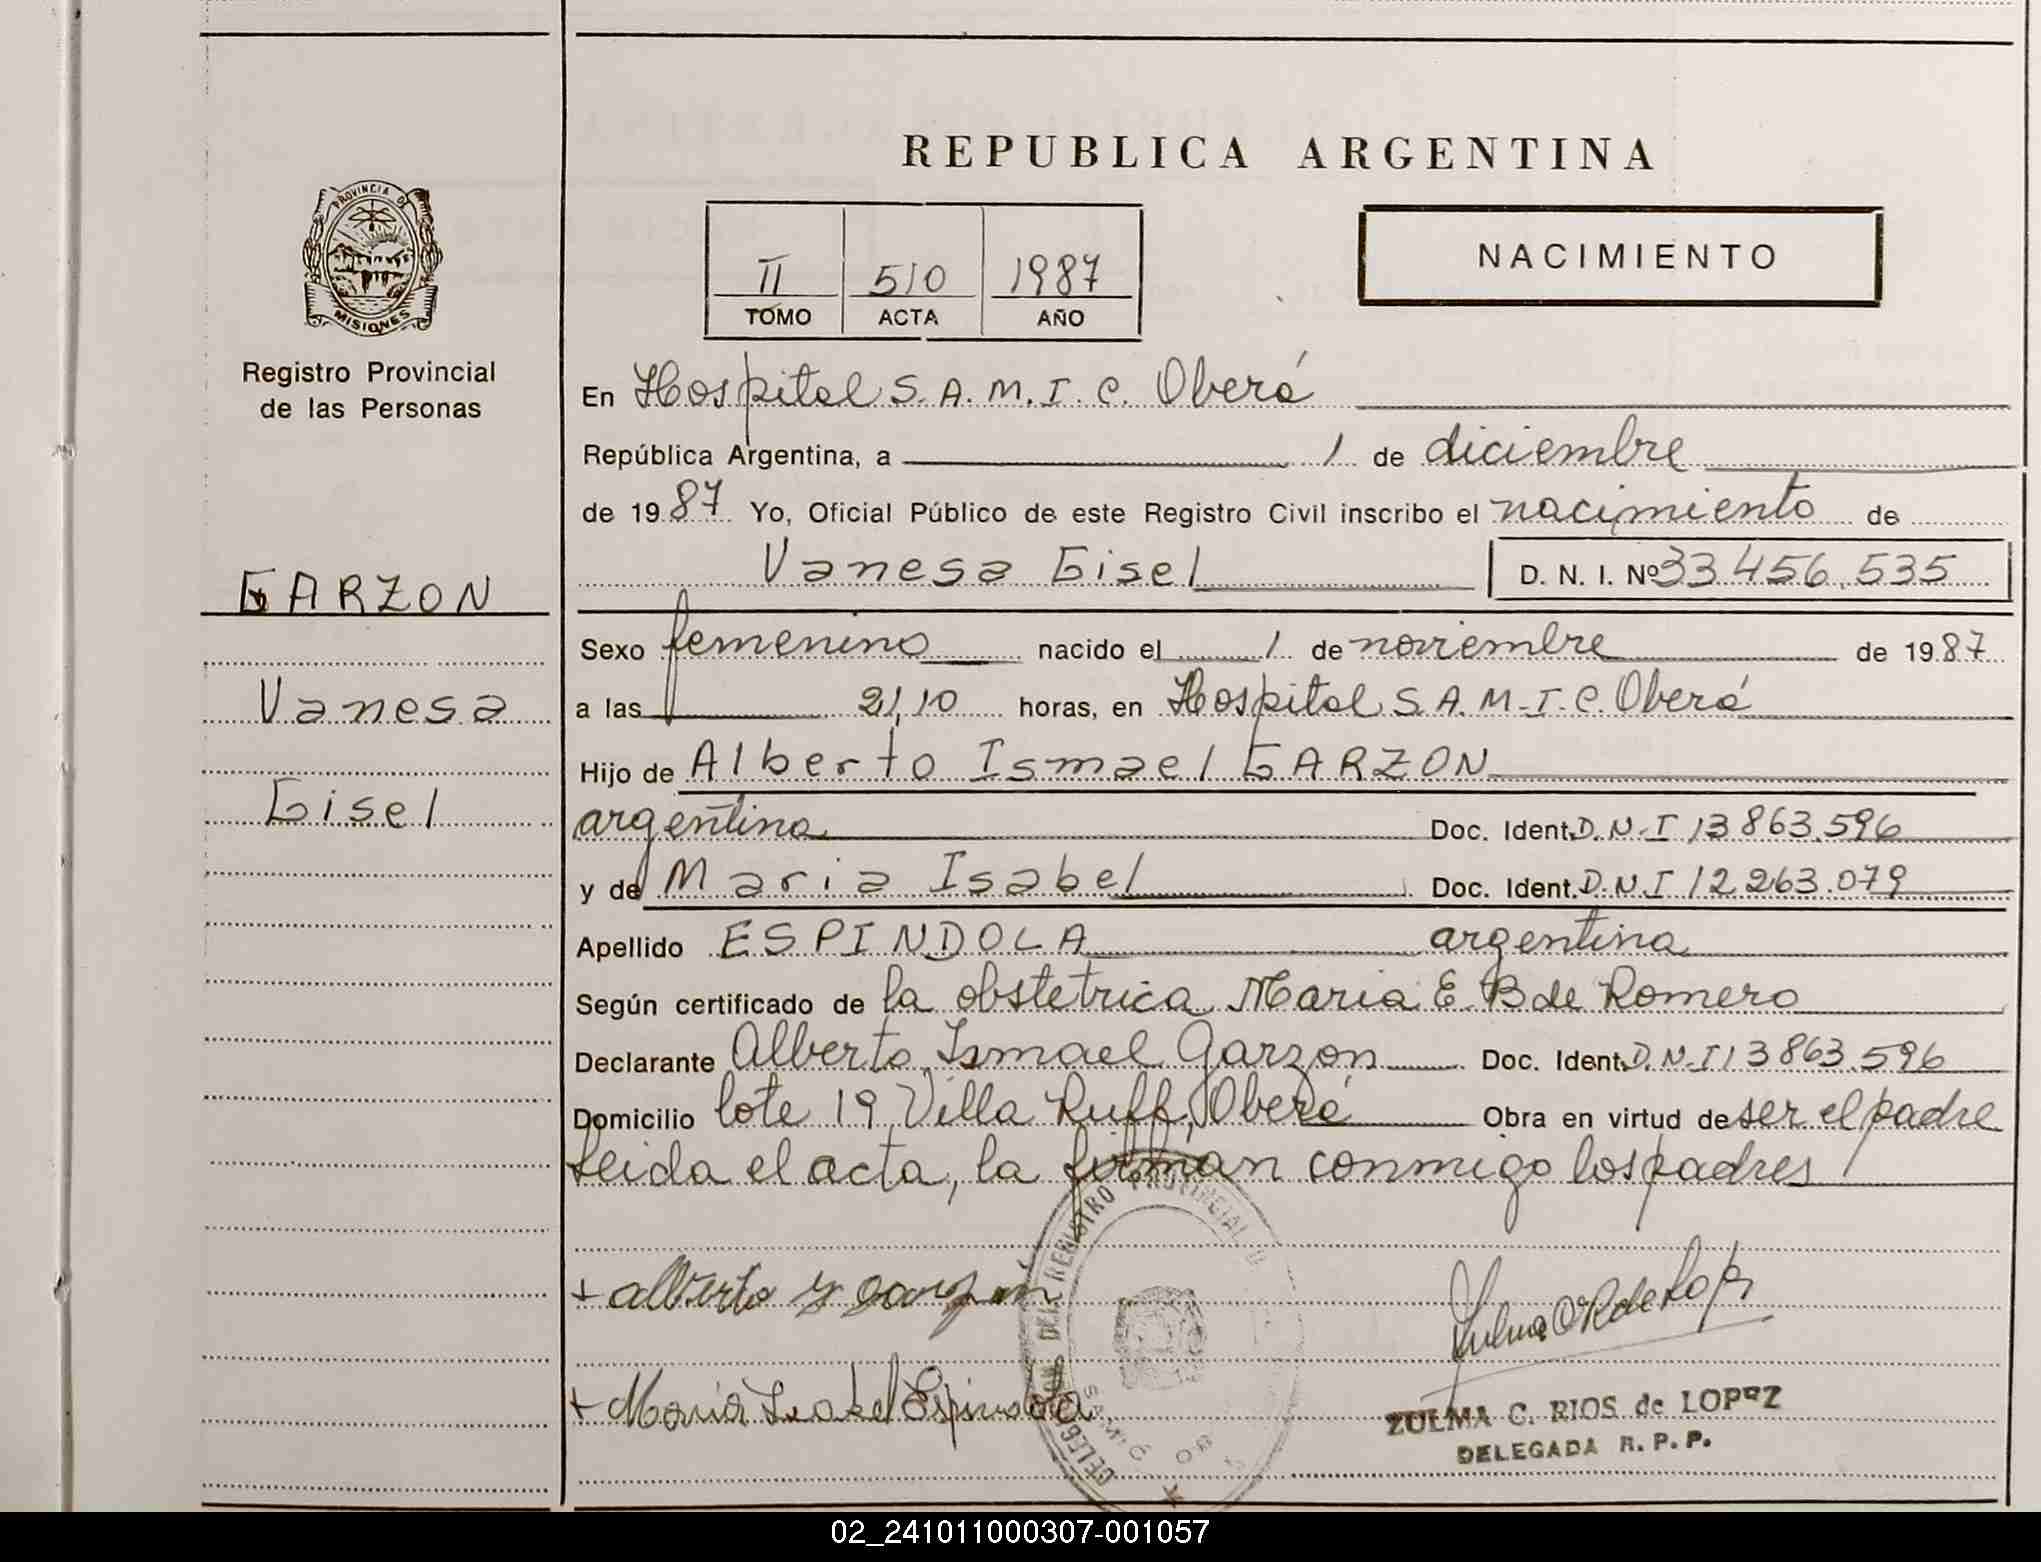 REPUBLICA ARGENTINA
PROVINCIA D
MISIONES
Registro Provincial
de las Personas
GARZON
Vanesa
Gisel
II 510 1987
TOMO ACTA AÑO
NACIMIENTO
En Hospital S.A.M.I.C. Oberá
República Argentina, a 1 de diciembre
de 1987 Yo, Oficial Público de este Registro Civil inscribo el nacimiento de
Vanesa Gisel D. N. I. Nº 33 456.535
Sexo femenino nacido el 1 de noviembre de 1987
a las 21,10 horas, en Hospital S.A.M.I.C. Oberá
Hijo de Alberto Ismael GARZON
argentina Doc. Ident. D.N.I 13 863.596
y de Maria Isabel Doc. Ident. D.N.I 12.263.079
Apellido ESPINDOLA argentina
Según certificado de la obstetrica Maria E. B de Romero
Declarante Alberto Ismael Garzon Doc. Ident. D.N.I 13 863.596
Domicilio lote 19 Villa Ruff, Oberá Obra en virtud de ser el padre
Leida el acta, la firman conmigo los padres
+ alberto y garzon
+ Maria Isabel Espindola
REGISTRO PROVINCIAL D
ZULMA C. RIOS de LOPEZ
DELEGADA R. P. P.
02_241011000307-001057